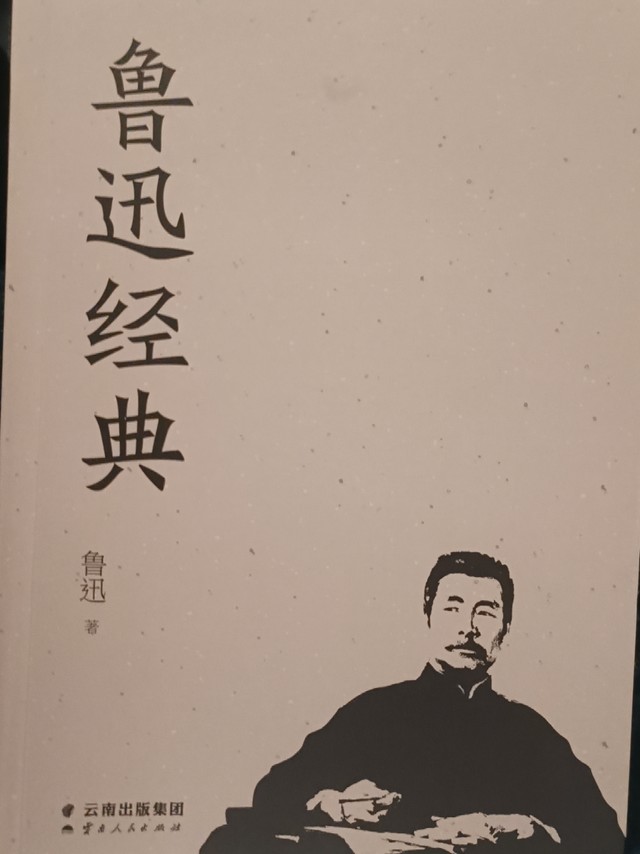 鲁迅经典
鲁迅
著
云南出版集团
云南人民出版社